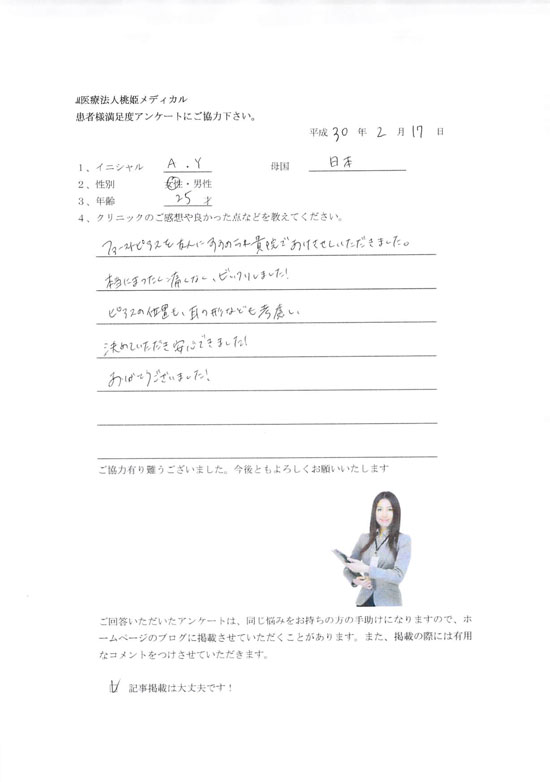 医療法人桃姫メディカル
患者様満足度アンケートにご協力下さい。
平成 30 年 2 月 17 日
1、イニシャル A.Y 母国 日本
2、性別 女性・男性
3、年齢 25 才
4、クリニックのご感想や良かった点などを教えてください。
ファーストピアスを友人にすすめられ貴院であけさせていただきました。
本当にまったく痛くなく、ビックリしました!
ピアスの位置も、耳の形なども考慮し、
決めていただき安心できました!
ありがとうございました!
ご協力有り難うございました。今後ともよろしくお願いいたします
ご回答いただいたアンケートは、同じ悩みをお持ちの方の手助けになりますので、ホ
ームページのブログに掲載させていただくことがあります。また、掲載の際には有用
なコメントをつけさせていただきます。
記事掲載は大丈夫です!